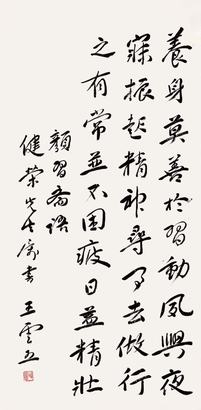 養身莫善於習動夙興夜
寐振起精神尋事去做行
之有常並不困疲日益精壯
顏習齋語
健榮先生屬書 王雲五